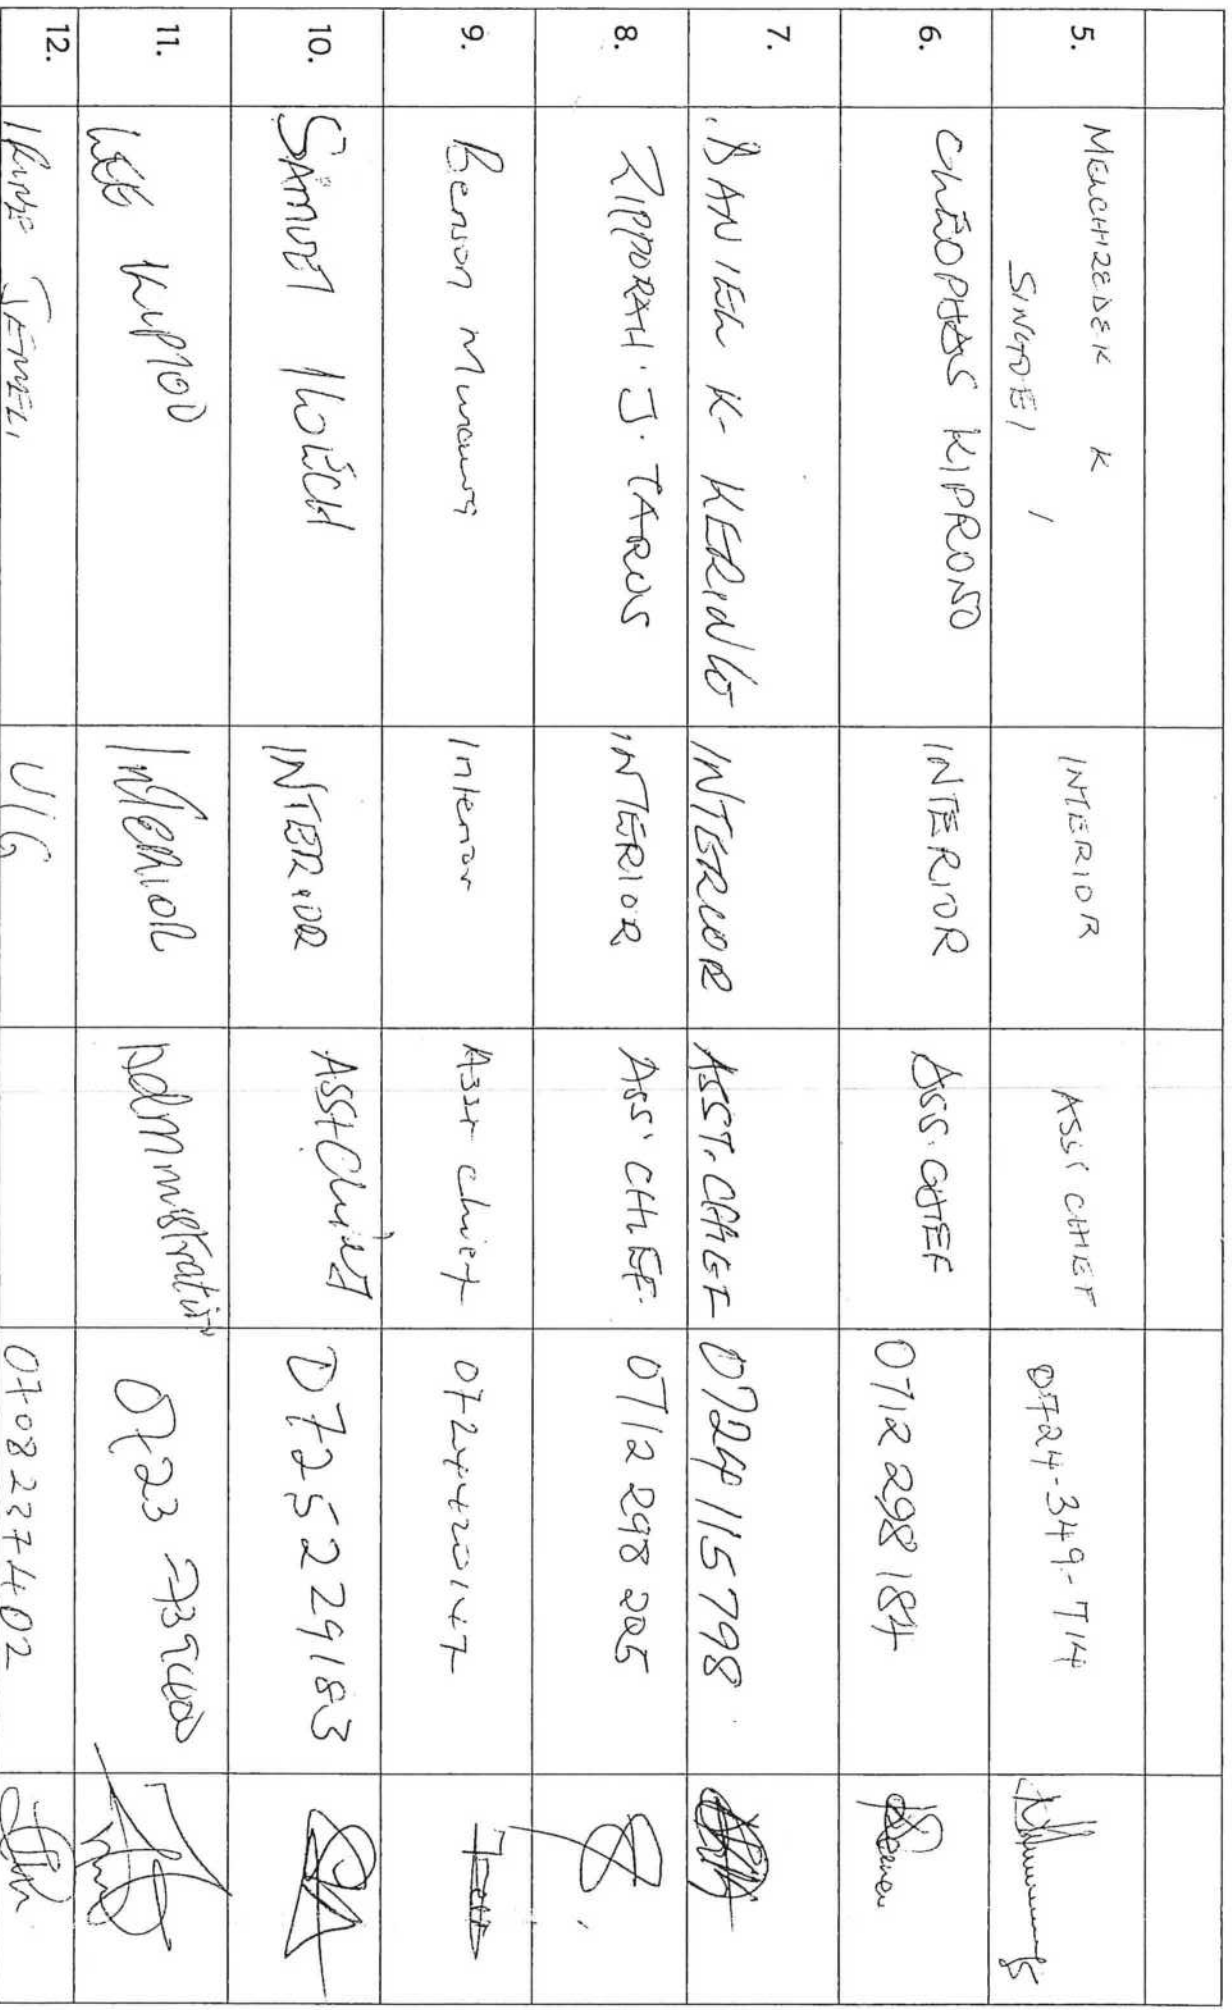 5. MELCHIZEDEK K SINGOEI INTERIOR ASS' CHIEF 0724-349-714
6. CHLEOPHAS KIPRONO INTERIOR ASS. CHIEF 0712 298 184
7. DANIEL K. KERING INTERIOR ASST. CHIEF 0724115798
8. ZIPPORAH J. TARUS INTERIOR ASS. CHIEF. 0712 298 205
9. Benson Interior Asst chief 0724420147
10. SAMUEL KOECH INTERIOR ASST Chief 0725229183
11. LEE KIPTOO INTERIOR Administration 0723
12. JEMELI 0708237402